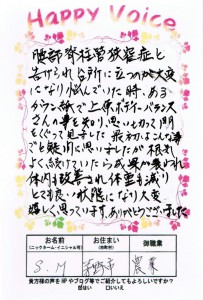 Happy Voice
腰部脊柱管狭窄症と
告げられ台所に立つのが大変
になり悩んでいた時、ある
タウン誌で上原ボディーバランス
さんの事を知り、思いきって門
をくぐって見ました 最初はこんな事
でと疑問く思いましたが根気
よく続けていたら成果が表われ
体内も改善され体重も減り
とても良い状態になり大変
嬉しく思っています。ありがとうございました
お名前
(ニックネーム・イニシャル可)
お住まい
(市町村)
御職業
S.M
茅野市
農業
貴方様の声をHPやブログ等でご紹介してもよろしいですか?
☑はい 口いいえ